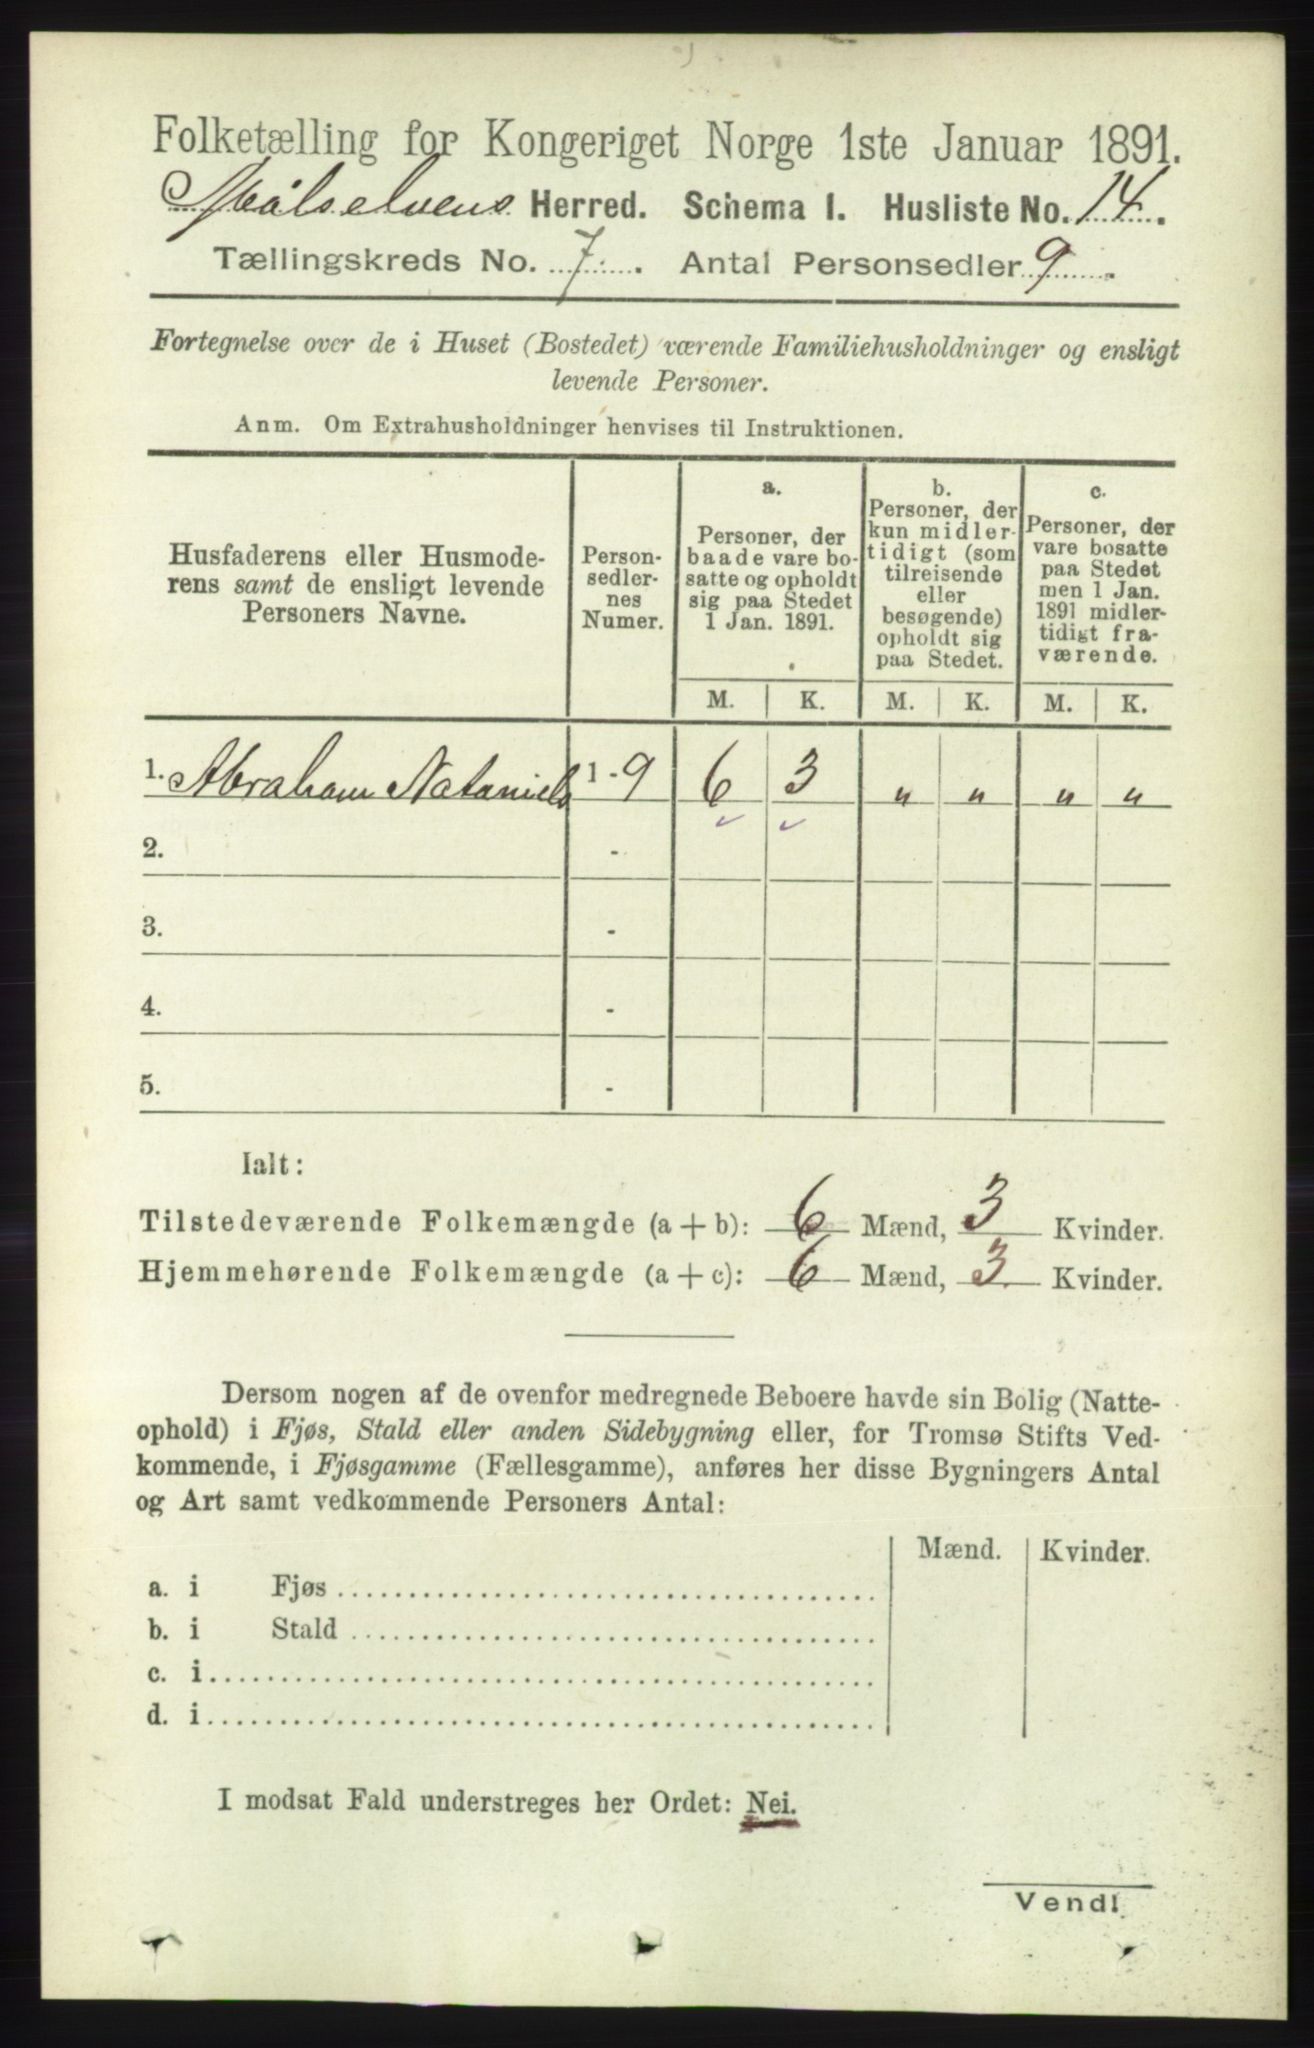 Folketælling for Kongeriget Norge 1ste Januar 1891.
Målselvens Herred. Schema I. Husliste No. 14.
Tællingskreds No. 7. Antal Personsedler 9.
Fortegnelse over de i Huset (Bostedet) værende Familiehusholdninger og ensligt
levende Personer.
Anm. Om Extrahusholdninger henvises til Instruktionen.
Husfaderens eller Husmode-
rens samt de ensligt levende
Personers Navne.
Person-
sedler-
nes
Numer.
a.
Personer, der
baade vare bo-
satte og opholdt
sig paa Stedet
1 Jan. 1891.
b.
Personer, der
kun midler-
tidigt (som
tilreisende
eller
besøgende)
opholdt sig
paa Stedet.
c.
Personer, der
vare bosatte
paa Stedet
men 1 Jan.
1891 midler-
tidigt fra-
værende.
M. K. M. K. M. K.
1. Abraham Nataniels 1 - 9 6 3 " " " "
2. -
3. -
4. -
5. -
Ialt:
Tilstedeværende Folkemængde (a + b): 6 Mænd, 3 Kvinder.
Hjemmehørende Folkemængde (a + c): 6 Mænd, 3 Kvinder.
Dersom nogen af de ovenfor medregnede Beboere havde sin Bolig (Natte-
ophold) i Fjøs, Stald eller anden Sidebygning eller, for Tromsø Stifts Ved-
kommende, i Fjøsgamme (Fællesgamme), anføres her disse Bygningers Antal
og Art samt vedkommende Personers Antal:
Mænd. Kvinder.
a. i Fjøs
b. i Stald
c. i
d. i
I modsat Fald understreges her Ordet: Nei.
Vend!